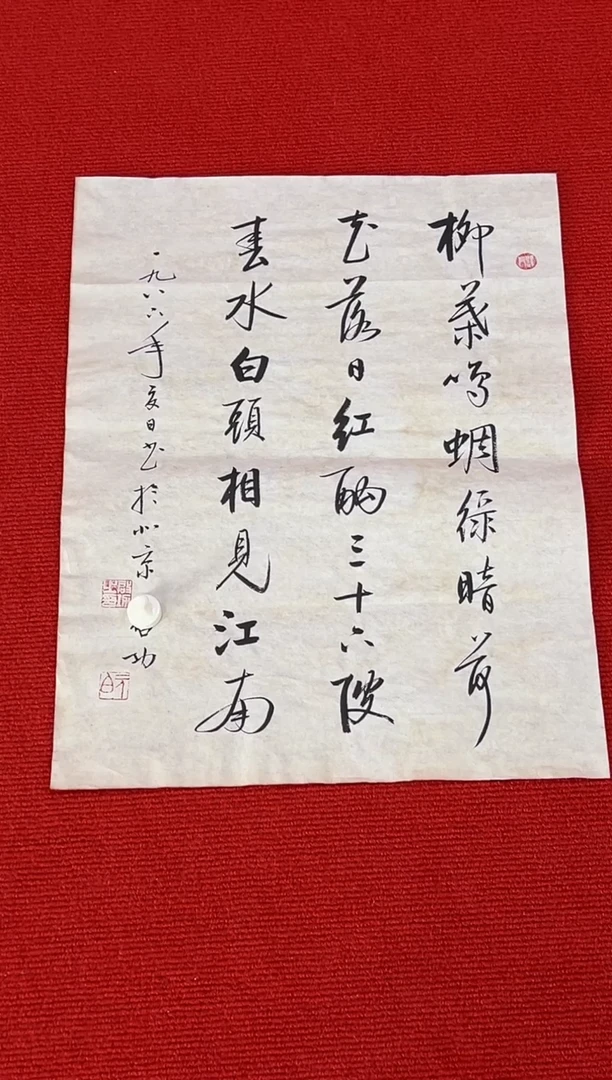 柳葉鳴蜩綠暗荷
花落日紅酣三十六陂
春水白頭相見江南
一九八六年夏日书於北京
功